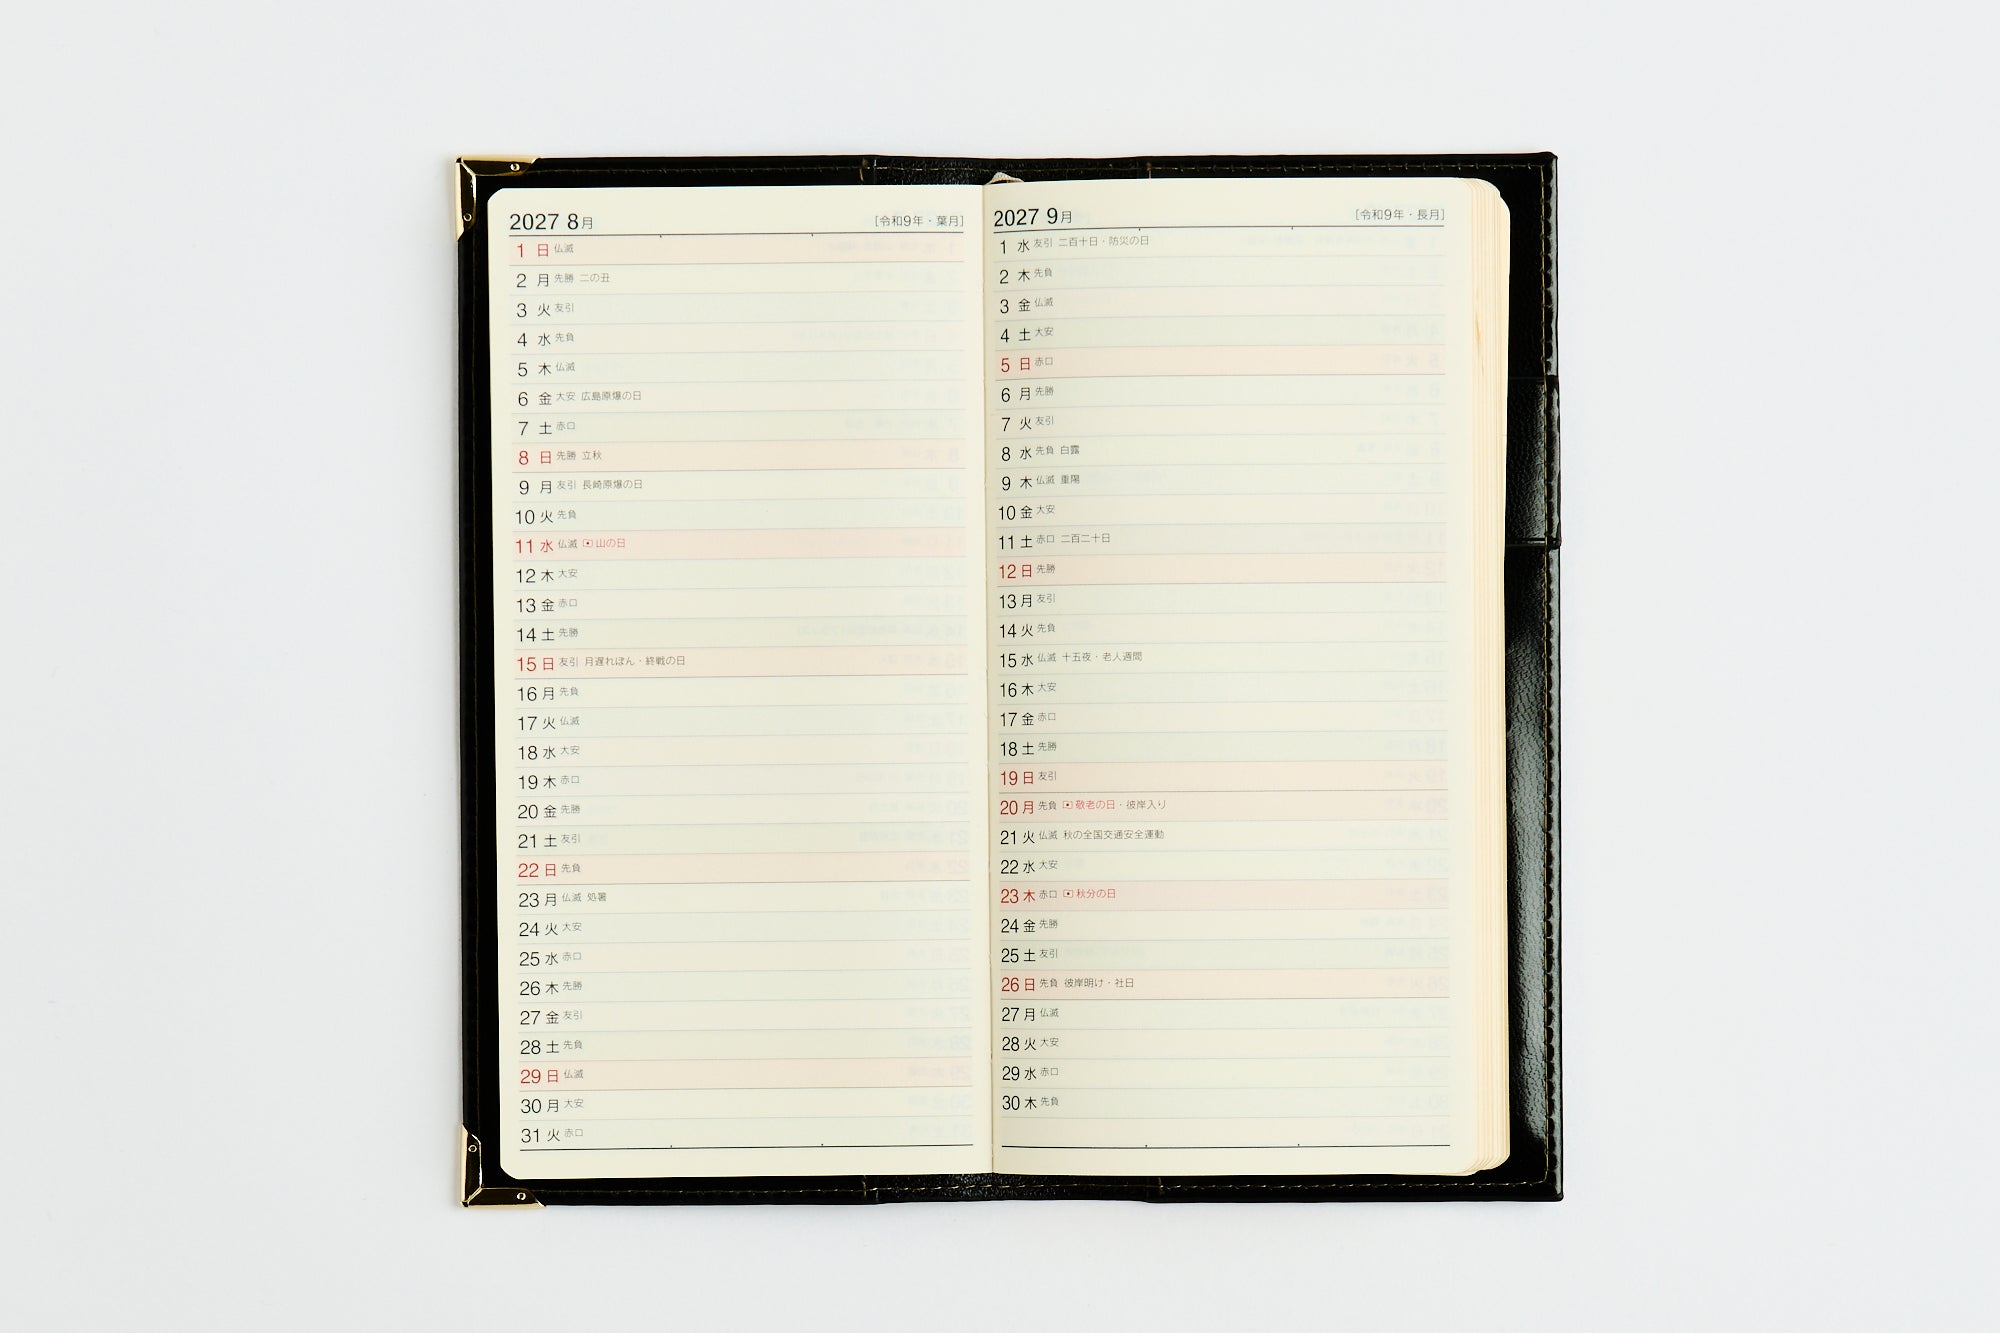 2027 8月 [令和9年・葉月]
1 日 仏滅
2 月 先勝 二の丑
3 火 友引
4 水 先負
5 木 仏滅
6 金 大安 広島原爆の日
7 土 赤口
8 日 先勝 立秋
9 月 友引 長崎原爆の日
10 火 先負
11 水 仏滅 山の日
12 木 大安
13 金 赤口
14 土 先勝
15 日 友引 月遅れぼん・終戦の日
16 月 先負
17 火 仏滅
18 水 大安
19 木 赤口
20 金 先勝
21 土 友引
22 日 先負
23 月 仏滅 処暑
24 火 大安
25 水 赤口
26 木 先勝
27 金 友引
28 土 先負
29 日 仏滅
30 月 大安
31 火 赤口
2027 9月 [令和9年・長月]
1 水 友引 二百十日・防災の日
2 木 先負
3 金 仏滅
4 土 大安
5 日 赤口
6 月 先勝
7 火 友引
8 水 先負 白露
9 木 仏滅 重陽
10 金 大安
11 土 赤口 二百二十日
12 日 先勝
13 月 友引
14 火 先負
15 水 仏滅 十五夜・老人週間
16 木 大安
17 金 赤口
18 土 先勝
19 日 友引
20 月 先負 敬老の日・彼岸入り
21 火 仏滅 秋の全国交通安全運動
22 水 大安
23 木 赤口 秋分の日
24 金 先勝
25 土 友引
26 日 先負 彼岸明け・社日
27 月 仏滅
28 火 大安
29 水 赤口
30 木 先負